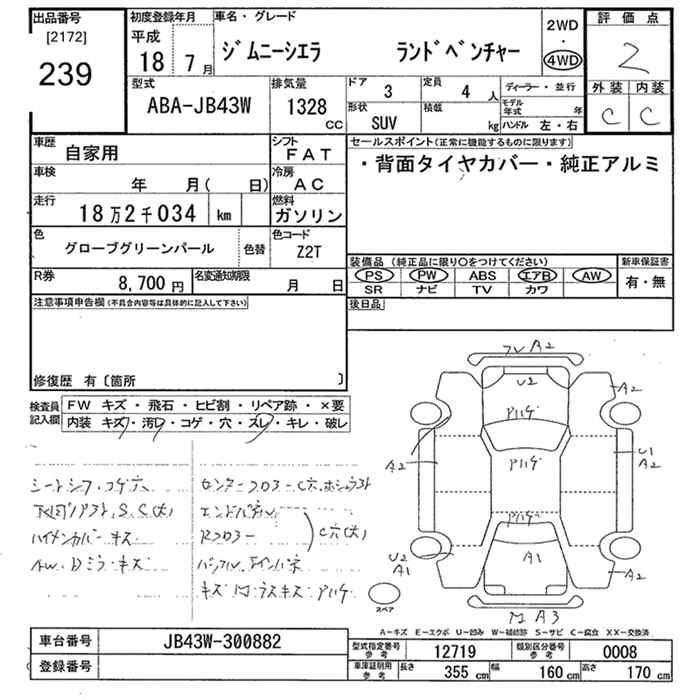 出品番号 初度登録年月 車名・グレード 2WD 評価点
[2172] 平成 ・
239 18年 7月 ジムニーシエラ ランドベンチャー 4WD 2
型式 排気量 ドア 3 定員 4人 ディーラー・並行 外装 内装
ABA-JB43W 1328cc 形状 SUV 積載 kg モデル年式 年 C C
ハンドル 左・右
車歴 自家用 シフト FAT セールスポイント(正常に機能するものに限ります)
車検 年 月( 日) 冷房 AC ・背面タイヤカバー・純正アルミ
走行 18万2千034 km 燃料 ガソリン
色 グローブグリーンパール 色替 色コード Z2T
装備品(純正品に限り○をつけてください) 新車保証書
R券 8,700円 名変通知期限 月 日 PS PW ABS エアB AW 有・無
SR ナビ TV カワ
注意事項申告欄(不具合内容等は具体的に記入して下さい) 後日品
修復歴 有〔箇所 〕
検査員記入欄 FW キズ・飛石・ヒビ割・リペア跡・×要
内装 キズ・汚レ・コゲ・穴・スレ・キレ・破レ
A2
U2
A2
アハゲ
A2
U1
A2
アハゲ
シートシワ・コゲ穴
アハゲ
S.C(大)
C穴(大)
ハイメンカバーキズ
U2
A1
A1
AW.Dミラーキズ
A2
A3
スペア
A-キズ E-エクボ U-凹み W-補修跡 S-サビ C-腐食 XX-交換済
車台番号 JB43W-300882 型式指定番号 参考 12719 類別区分番号 参考 0008
登録番号 車庫証明用 参考 長さ 355cm 幅 160cm 高さ 170cm